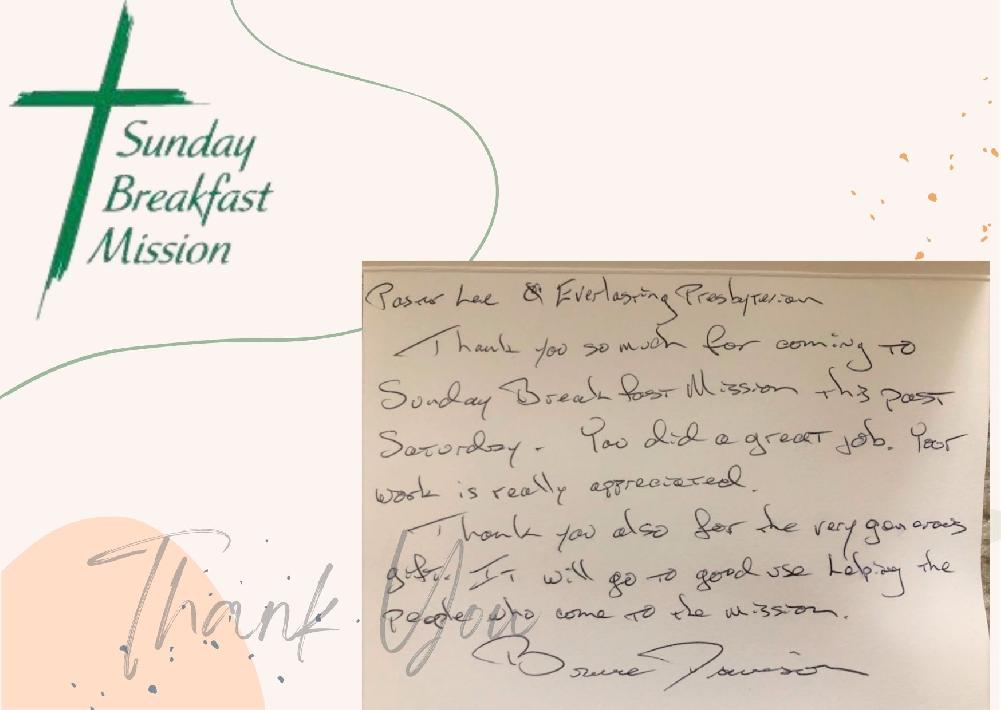 Sunday
Breakfast
Mission
Pastor Lee & Everlasting Presbyterian
Thank you so much for coming to
Sunday Breakfast Mission this past
Saturday. You did a great job. Your
work is really appreciated.
Thank you also for the very generous
gift. It will go to good use helping the
people who come to the mission.
Thank You